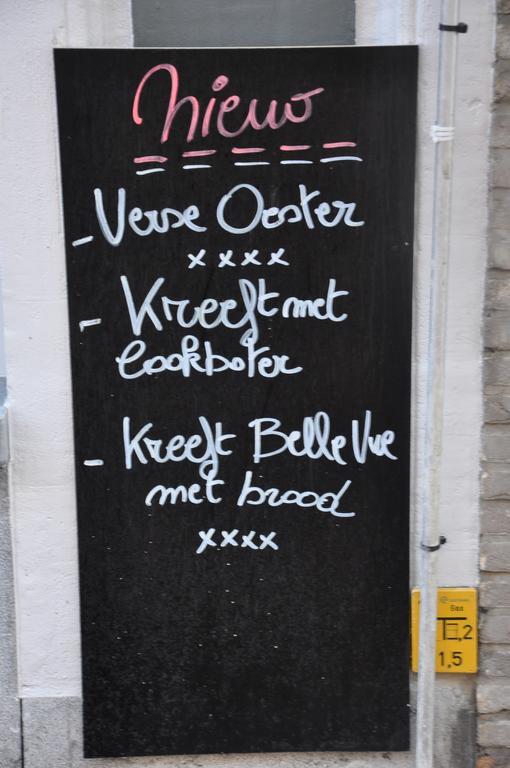 Nieuw
- Verse Oester
xxxx
- Kreeft met
lookboter
- Kreeft Belle Vue
met brood
xxxx
Gas
2
1,5